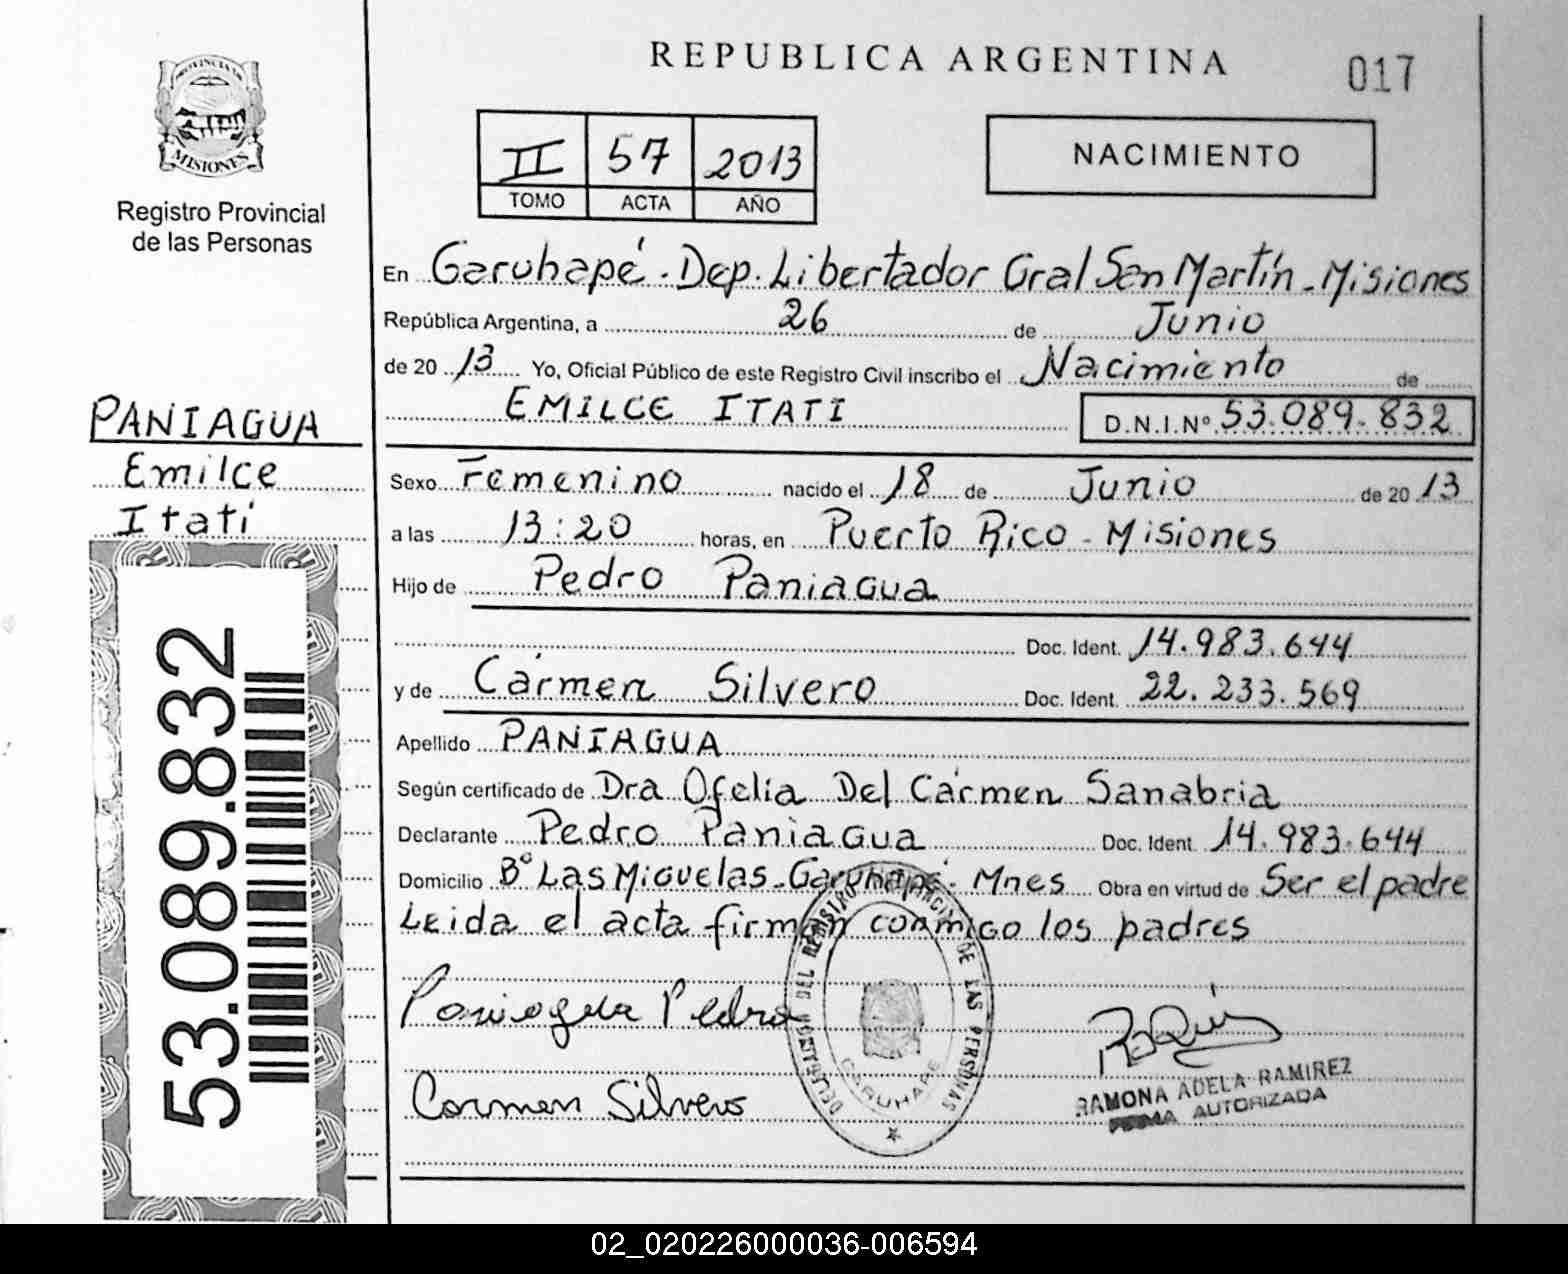 REPUBLICA ARGENTINA
017
PROVINCIA DE
MISIONES
Registro Provincial
de las Personas
II 57 2013
TOMO ACTA AÑO
NACIMIENTO
En Garuhapé. Dep. Libertador Gral San Martín. Misiones
República Argentina, a 26 de Junio
de 20 13 Yo, Oficial Público de este Registro Civil inscribo el Nacimiento de
EMILCE ITATI D.N.I.Nº 53.089.832
PANIAGUA
Emilce
Itatí
53.089.832
Sexo Femenino nacido el 18 de Junio de 20 13
a las 13:20 horas, en Puerto Rico - Misiones
Hijo de Pedro Paniagua
Doc. Ident. 14.983.644
y de Carmen Silvero Doc. Ident. 22.233.569
Apellido PANIAGUA
Según certificado de Dra Ofelia Del Carmen Sanabria
Declarante Pedro Paniagua Doc. Ident. 14.983.644
Domicilio Bº Las Miguelas - Garuhapé - Mnes Obra en virtud de Ser el padre
Leida el acta firman conmigo los padres
Paniagua Pedro
Carmen Silvero
DELEGACION DEL REGISTRO PROVINCIAL DE LAS PERSONAS
GARUHAPE
RAMONA ADELA RAMIREZ
FIRMA AUTORIZADA
02_020226000036-006594